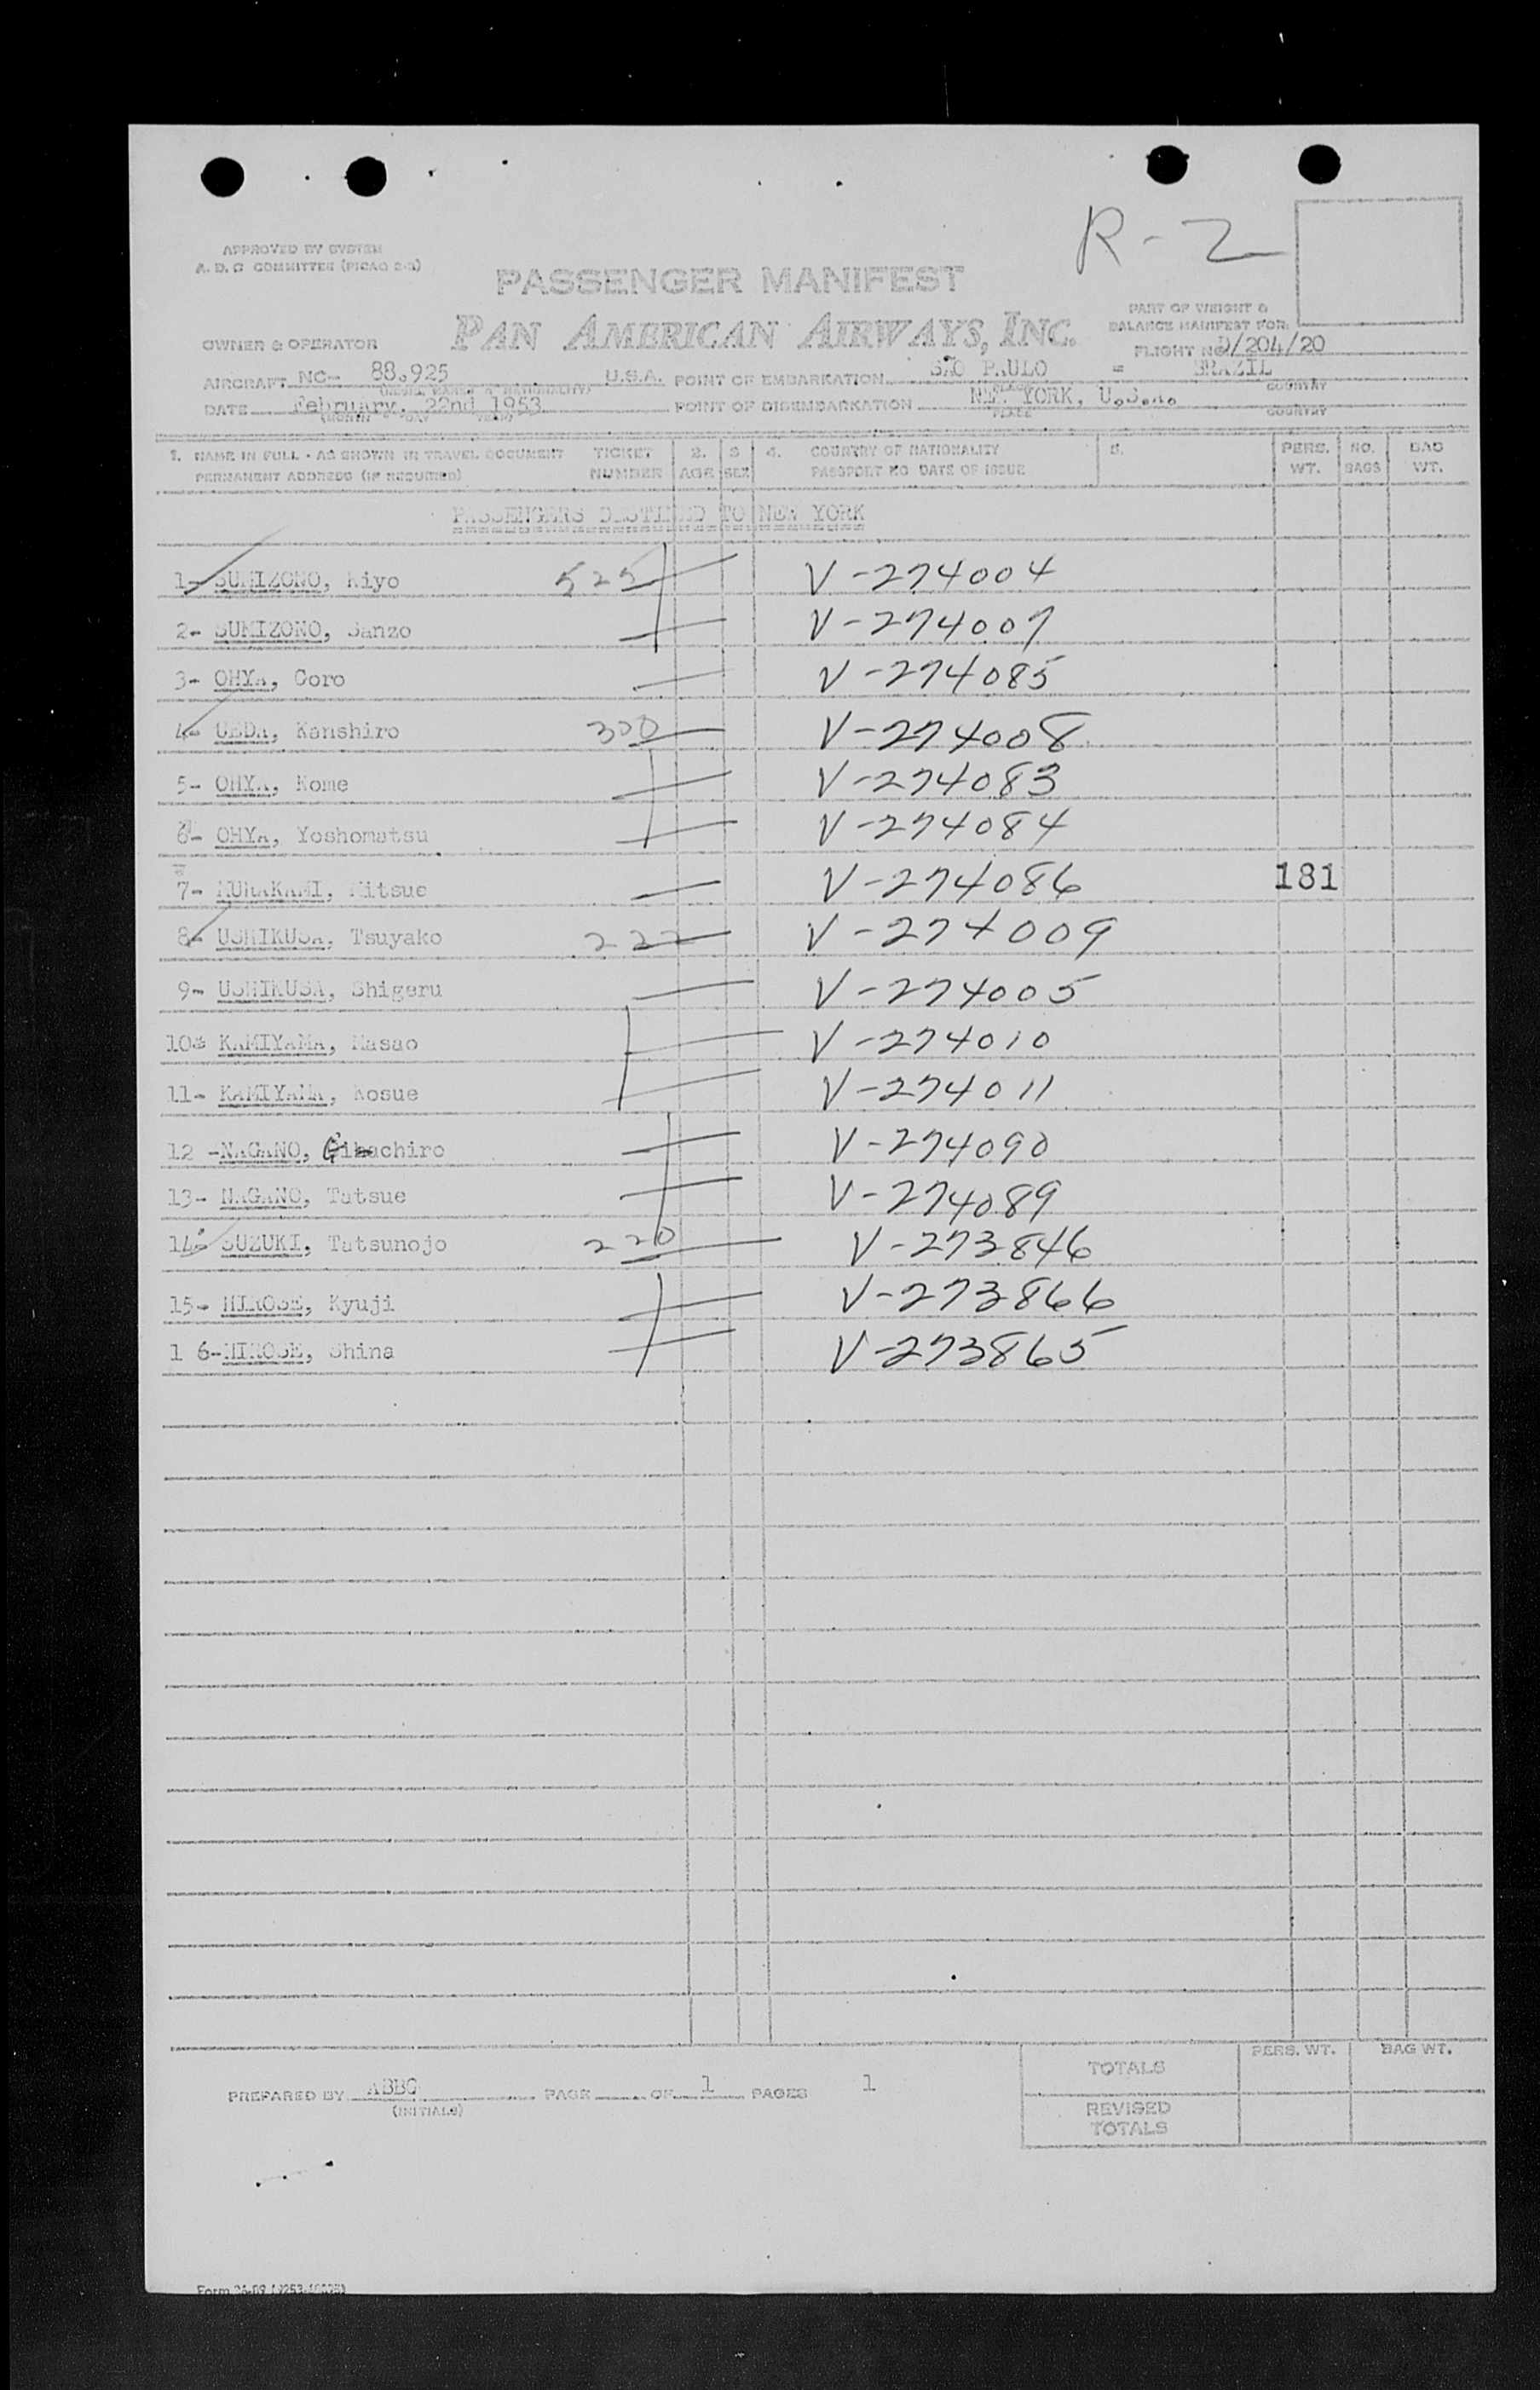 R-2
APPROVED BY SYSTEM
A. D. C COMMITTEE (PICAO 2-3)
PASSENGER MANIFEST
PART OF WEIGHT &
BALANCE MANIFEST FOR:
OWNER & OPERATOR PAN AMERICAN AIRWAYS, INC.
FLIGHT NO D/204/20
AIRCRAFT NC- 88.925 U.S.A. POINT OF EMBARKATION SÃO PAULO = BRAZIL
PLACE COUNTRY
DATE February, 22nd 1953 POINT OF DISEMBARKATION NEW YORK, U.S.A.
(MONTH DAY YEAR) PLACE COUNTRY
1. NAME IN FULL - AS SHOWN IN TRAVEL DOCUMENT TICKET 2. 3 4. COUNTRY OF NATIONALITY 5. PERS. NO. BAG
PERMANENT ADDRESS (IF REQUIRED) NUMBER AGE SEX PASSPORT NO DATE OF ISSUE WT. BAGS WT.
PASSENGERS DESTINED TO NEW YORK
1- SUMIZONO, Kiyo 525 V-274004
2- SUMIZONO, Sanzo V-274007
3- OHYA, Goro V-274085
4- UEDA, Kanshiro 300 V-274008
5- OHYA, Kome V-274083
6- OHYA, Yoshomatsu V-274084
7- MURAKAMI, Mitsue V-274086 181
8- USHIKUSA, Tsuyako 222 V-274009
9- USHIKUSA, Shigeru V-274005
10- KAMIYAMA, Masao V-274010
11- KAMIYAMA, Kosue V-274011
12 -NAGANO, Gihachiro V-274090
13- NAGANO, Tatsue V-274089
14- SUZUKI, Tatsunojo 220 V-273846
15- HIROSE, Kyuji V-273866
1 6-HIROSE, Shina V-273865
PERS. WT. BAG WT.
TOTALS
PREPARED BY ABBC PAGE OF 1 PAGES 1
(INITIALS)
REVISED
TOTALS